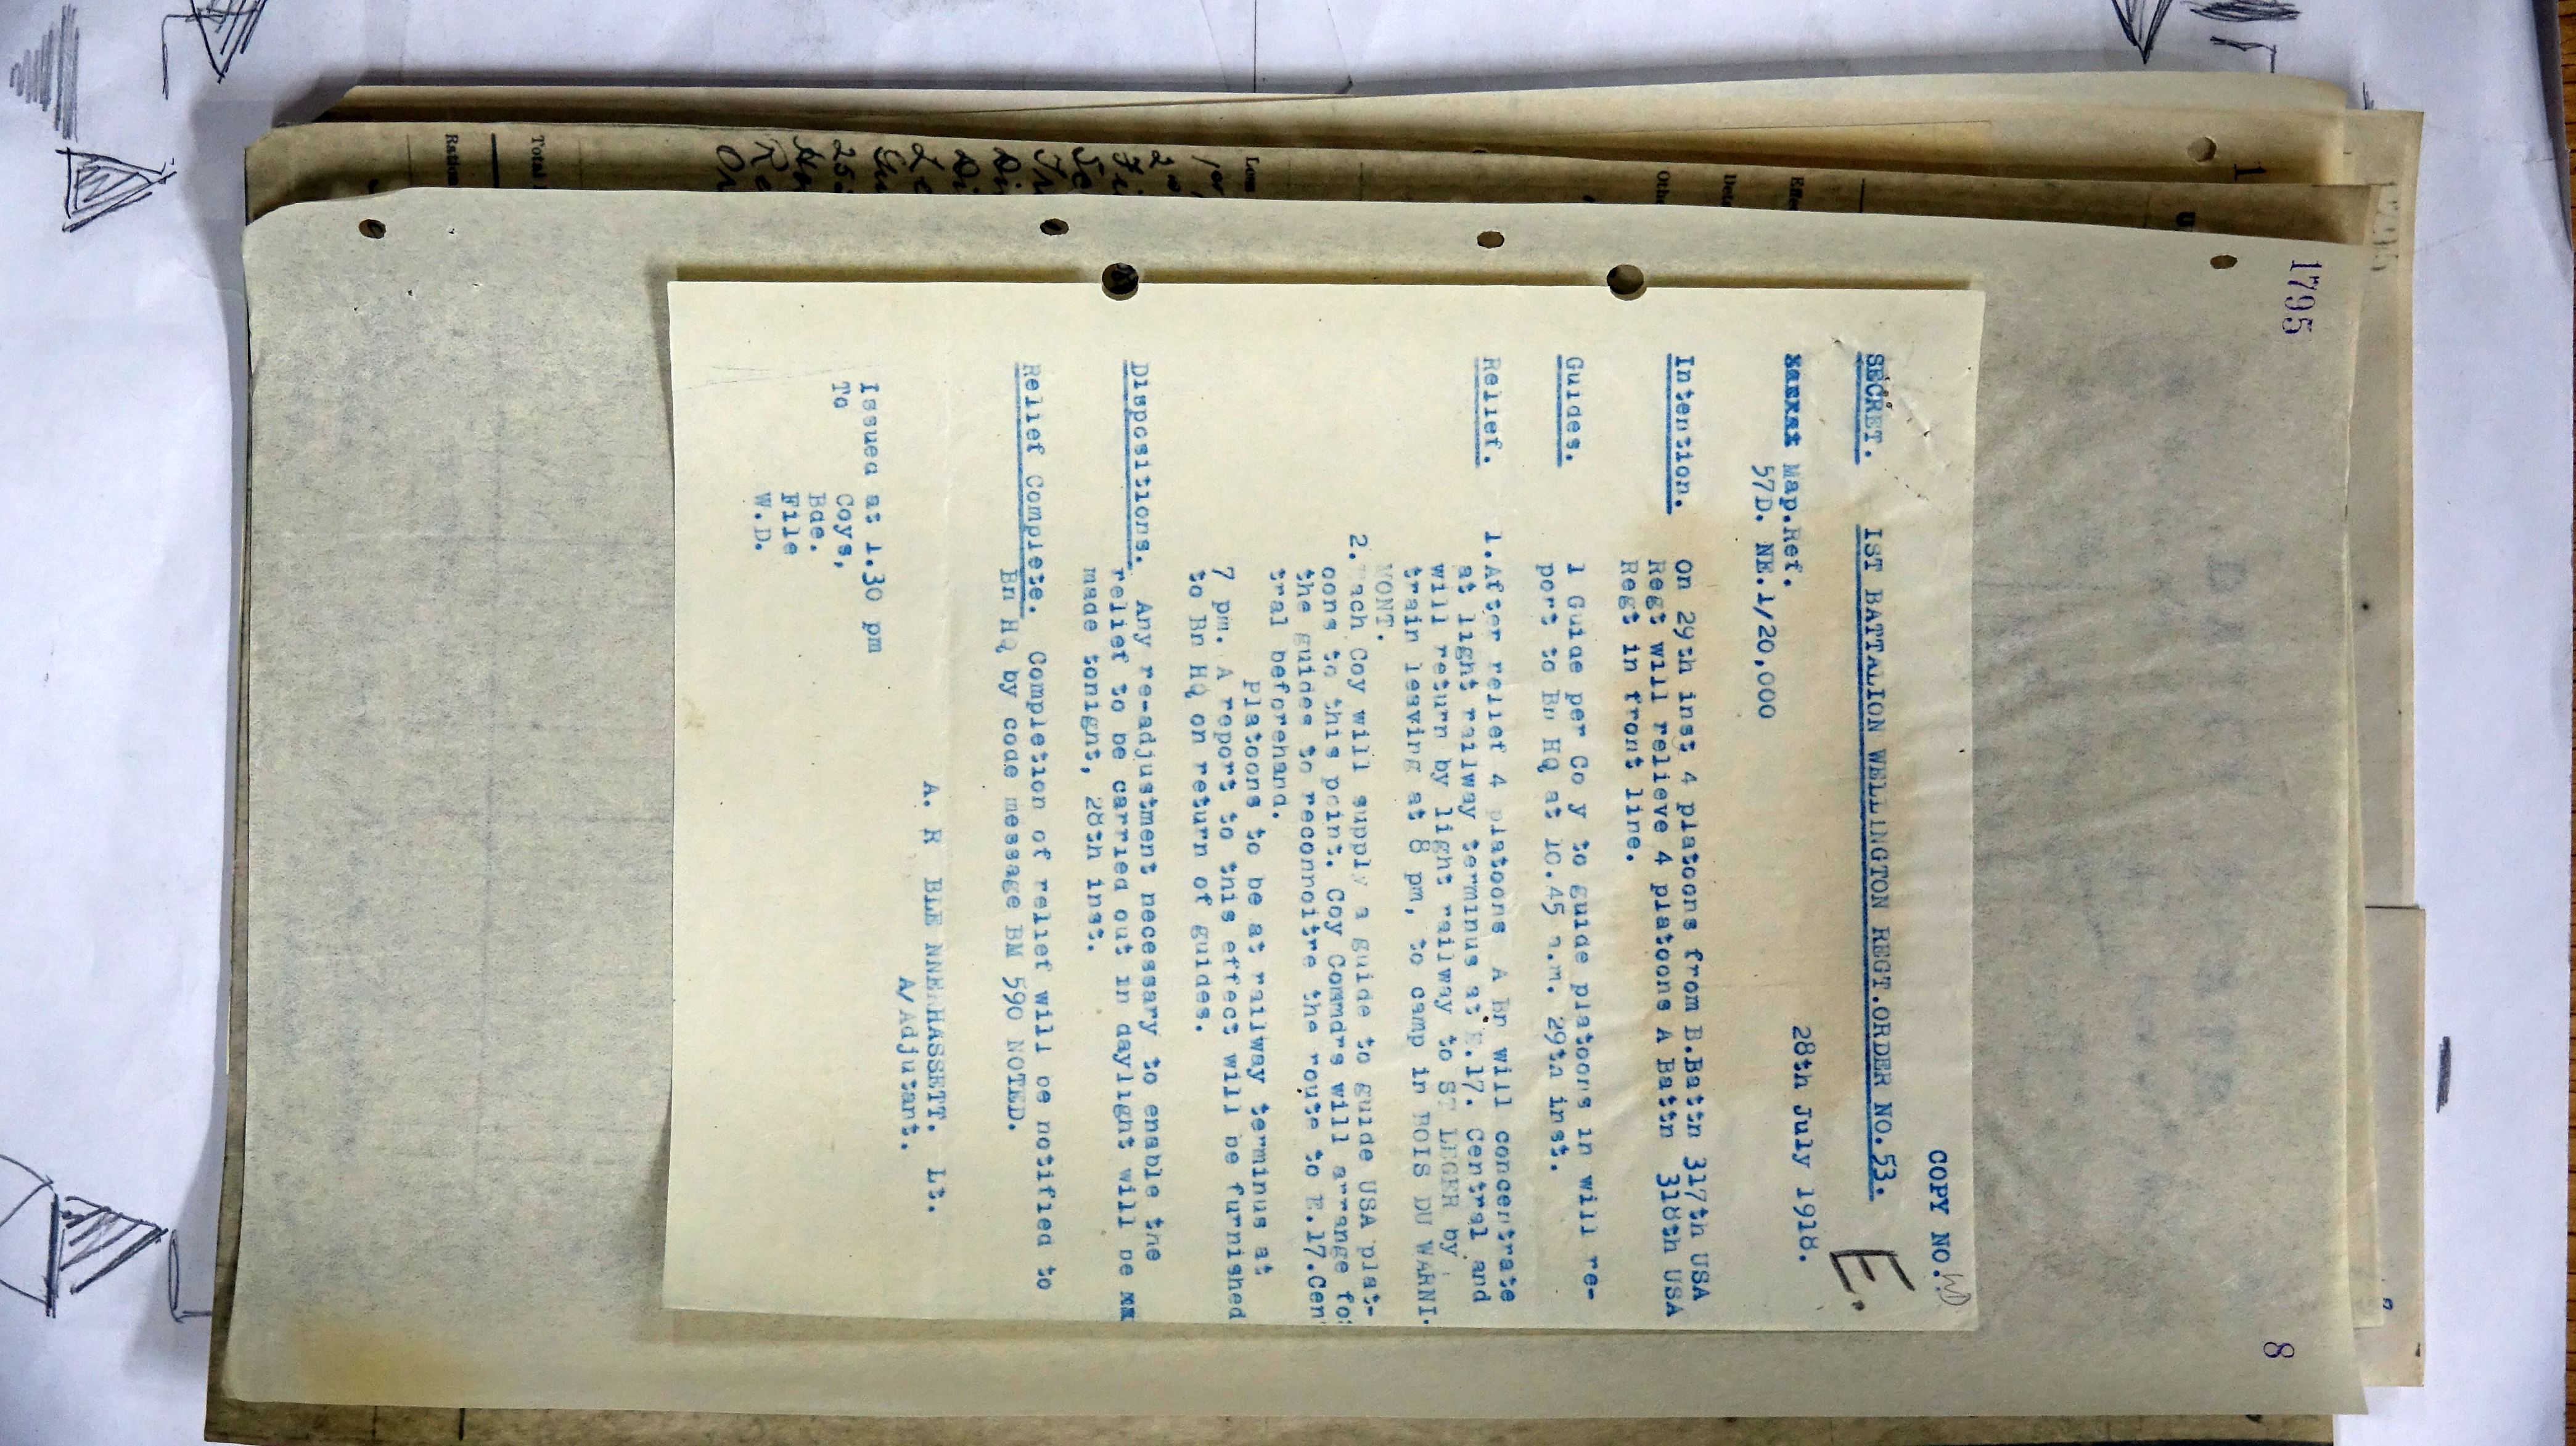 1795
8
COPY NO. WD
E.
SECRET. IST BATTALION WELLINGTON REGT.ORDER NO.53.
28th July 1918.
Map.Ref.
57D. NE.1/20,000
Intention. On 29th inst 4 platoons from B.Battn 317th USA
Regt will relieve 4 platoons A Battn 318th USA
Regt in front line.
Guides. 1 Guide per Co y to guide platoons in will re-
port to Bn HQ at 10.45 a.m. 29th inst.
Relief. 1.After relief 4 platoons A Bn will concentrate
at light railway terminus at E.17. Central and
will return by light railway to ST LEGER by
train leaving at 8 pm, to camp in BOIS DU WARNI-
MONT.
2. Each Coy will supply a guide to guide USA plat-
oons to this point. Coy Commdrs will arrange for
the guides to reconnoitre the route to E.17.Cen
tral beforehand.
Platoons to be at railway terminus at
7 pm. A report to this effect will be furnished
to Bn HQ on return of guides.
Dispositions. Any re-adjustment necessary to enable the
relief to be carried out in daylight will be
made tonight, 28th inst.
Relief Complete. Completion of relief will be notified to
Bn HQ by code message BM 590 NOTED.
A. R BLE NNERHASSETT. Lt.
A/Adjutant.
Issued at 1.30 pm
To Coys,
Bde.
File
W.D.
Loss
Total
Ration